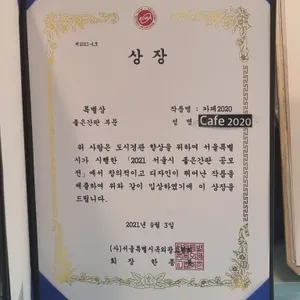 상 장
특별상
좋은간판 부문
작품명 : 카페2020
성 명 Cafe 2020
위 사람은 도시경관 향상을 위하여 서울특별
시가 시행한 「2021 서울시 좋은간판 공모
전」에서 창의적이고 디자인이 뛰어난 작품을
제출하여 위와 같이 입상하였기에 이 상장을
드립니다.
2021년 9월 3일
(사)서울특별시옥외광고협회
회 장 한